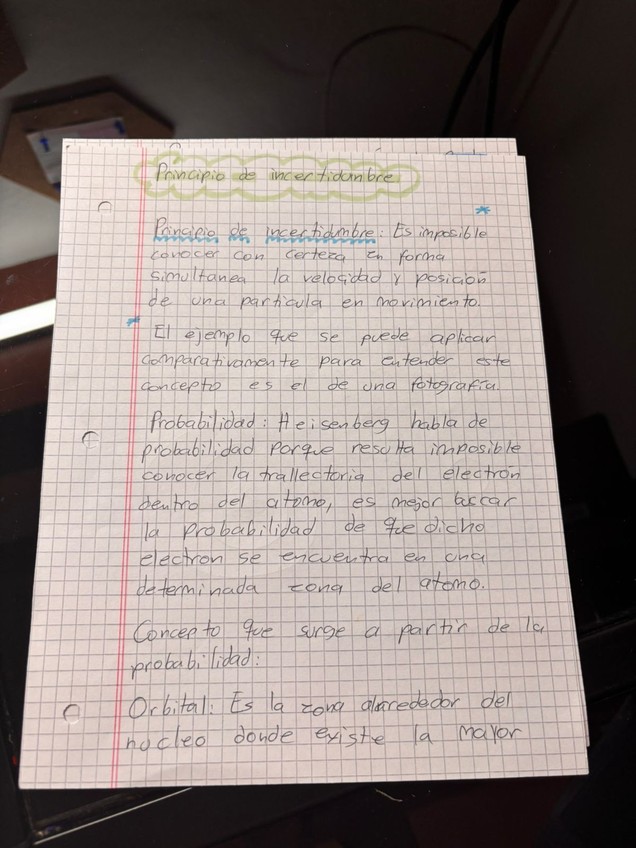 Principio de incertidumbre
Principio de incertidumbre: Es imposible
conocer con certeza en forma
simultanea la velocidad y posición
de una particula en movimiento.
El ejemplo que se puede aplicar
comparativamente para entender este
concepto es el de una fotografía.
Probabilidad: Heisenberg habla de
probabilidad porque resulta imposible
conocer la trallectoria del electrón
dentro del atomo, es mejor buscar
la probabilidad de que dicho
electron se encuentra en una
determinada zona del atomo.
Concepto que surge a partir de la
probabilidad:
Orbital: Es la zona alrededor del
nucleo donde existe la mayor